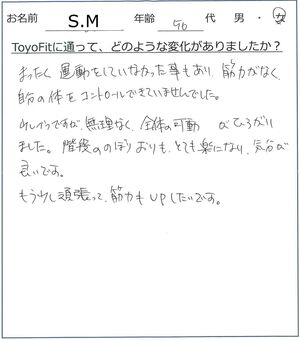 お名前 S.M 年齢 50 代 男・女
ToyoFitに通って、どのような変化がありましたか？
まったく運動をしていなかった事もあり、筋力がなく
自分の体をコントロールできていませんでした。
少しずつですが、無理なく、全体の可動 がひろがり
ました。階段ののぼりおりも、とても楽になり、気分が
良いです。
もう少し頑張って、筋力も UPしたいです。